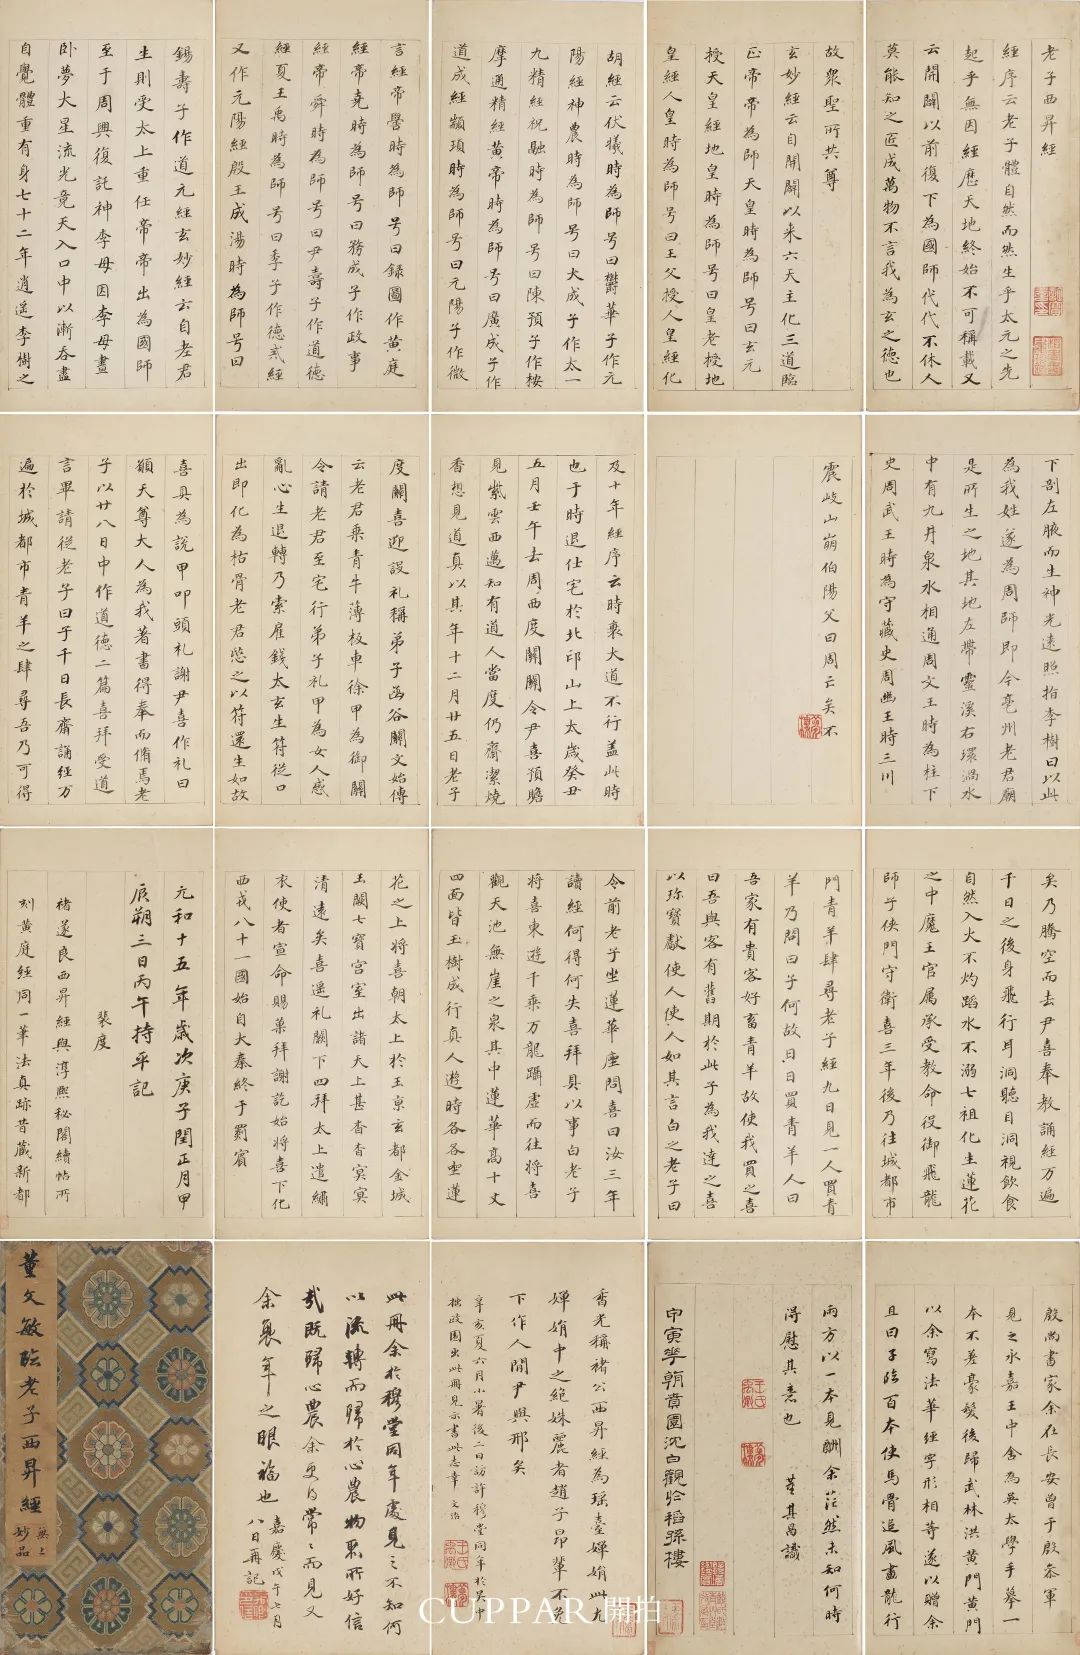 老子西昇經
經序云老子體自然而然生乎太元之先
起乎無因經歷天地終始不可稱載又
云開闢以前復下為國師代代不休人
莫能知之匠成萬物不言我為玄之德也
故衆聖所共尊
玄妙經云自開闢以来六天主化三道臨
正帝帝為師天皇時為師号曰玄元
授天皇經地皇時為師号曰皇老授地
皇經人皇時為師号曰王父授人皇經化
胡經云伏犧時為師号曰欝華子作元
陽經神農時為師号曰大成子作太一
九精經祝融時為師号曰陳預子作桉
摩通精經黄帝時為師号曰廣成子作
道成經顓頊時為師号曰元陽子作微
言經帝嚳時為師号曰録圖作黄庭
經帝堯時為師号曰務成子作政事
經帝舜時為師号曰尹壽子作道德
經夏王禹時為師号曰季子作德戒經
又作元陽經殷王成湯時為師号曰
錫壽子作道元經玄妙經云自老君
生則受太上重任帝帝出為國師
至于周興復託神李母因李母晝
卧夢大星流光竟天入口中以漸吞盡
自覺體重有身七十二年逍遥李樹之
下剖左腋而生神光遠照指李樹曰以此
為我姓遂為周師即今亳州老君廟
是所生之地其地左帶靈溪右環渦水
中有九井泉水相通周文王時為柱下
史周武王時為守藏史周幽王時三川
震岐山崩伯陽父曰周亡矣不
及十年經序云時衰大道不行盖此時
也于時退仕宅於北邙山上太歲癸丑
五月壬午去周西度關關令尹喜預瞻
見紫雲西邁知有道人當度仍齋潔燒
香想見道真以其年十二月廿五日老子
度關喜迎設礼稱弟子函谷關文始傳
云老君乗青牛薄板車徐甲為御關
令請老君至宅行弟子礼甲為女人感
亂心生退轉乃索雇錢太玄生符從口
出即化為枯骨老君愍之以符還生如故
喜具為說甲叩頭礼謝尹喜作礼曰
願天尊大人為我著書得奉而脩焉老
子以廿八日中作道德二篇喜拜受道
言畢請從老子曰子千日長齋誦經万
遍於城都市青羊之肆尋吾乃可得
矣乃騰空而去尹喜奉教誦經万遍
千日之後身飛行耳洞聽目洞視飲食
自然入火不灼蹈水不溺七祖化生蓮花
之中魔王官属承受教命役御飛龍
師子侠門守衛喜三年後乃往城都市
門青羊肆尋老子經九日見一人買青
羊乃問曰子何故日日買青羊人曰
吾家有貴客好畜青羊故使我買之喜
曰吾與客有舊期於此子為我達之喜
以珎寶獻使人使人如其言白之老子曰
令前老子坐蓮華座問喜曰汝三年
讀經何得何失喜拜具以事白老子
將喜東遊千乗万龍躡虛而往將喜
觀天池無崖之泉其中蓮華高十丈
四面皆玉樹成行真人遊時各各坐蓮
花之上将喜朝太上於玉京玄都金城
玉闕七寶宫室出諸天上甚杳杳冥冥
清遠矣喜遥礼闕下四拜太上遣繡
衣使者宣命賜菓拜謝訖始将喜下化
西戎八十一國始自大秦終于罽賓
元和十五年歲次庚子閏正月甲
辰朔三日丙午持平記
裴度
褚遂良西昇經與淳熙秘閣續帖所
刻黄庭經同一筆法真跡昔藏新都
殷尚書家余在長安曾于殷叅軍
見之永嘉王中舍為吳太學手摹一
本不差豪髮後歸武林洪黄門黄門
以余寫法華經字形相等遂以贈余
且曰子臨百本使馬骨追風畫龍行
雨方以一本見酬余茫然未知何時
得慰其意也 董其昌識
甲寅華朝賁園沈白觀於稻孫樓
香光稱褚公西昇經為瑶臺嬋娟此尤
嬋娟中之絕姝麗者趙子昂輩不免
下作人間尹與邢矣
辛亥夏六月小暑後二日訪許穆堂同年於吳中
拙政園出此冊見示書此志幸 文治
此冊余於穆堂同年處見之不知何
以流轉而歸於心農物聚所好信
哉既歸心農余更得常常而見又
余衰年之眼福也 嘉慶戊午七月
八日再記
董文敏臨老子西昇經 無上
妙品
CUPPAR 開拍